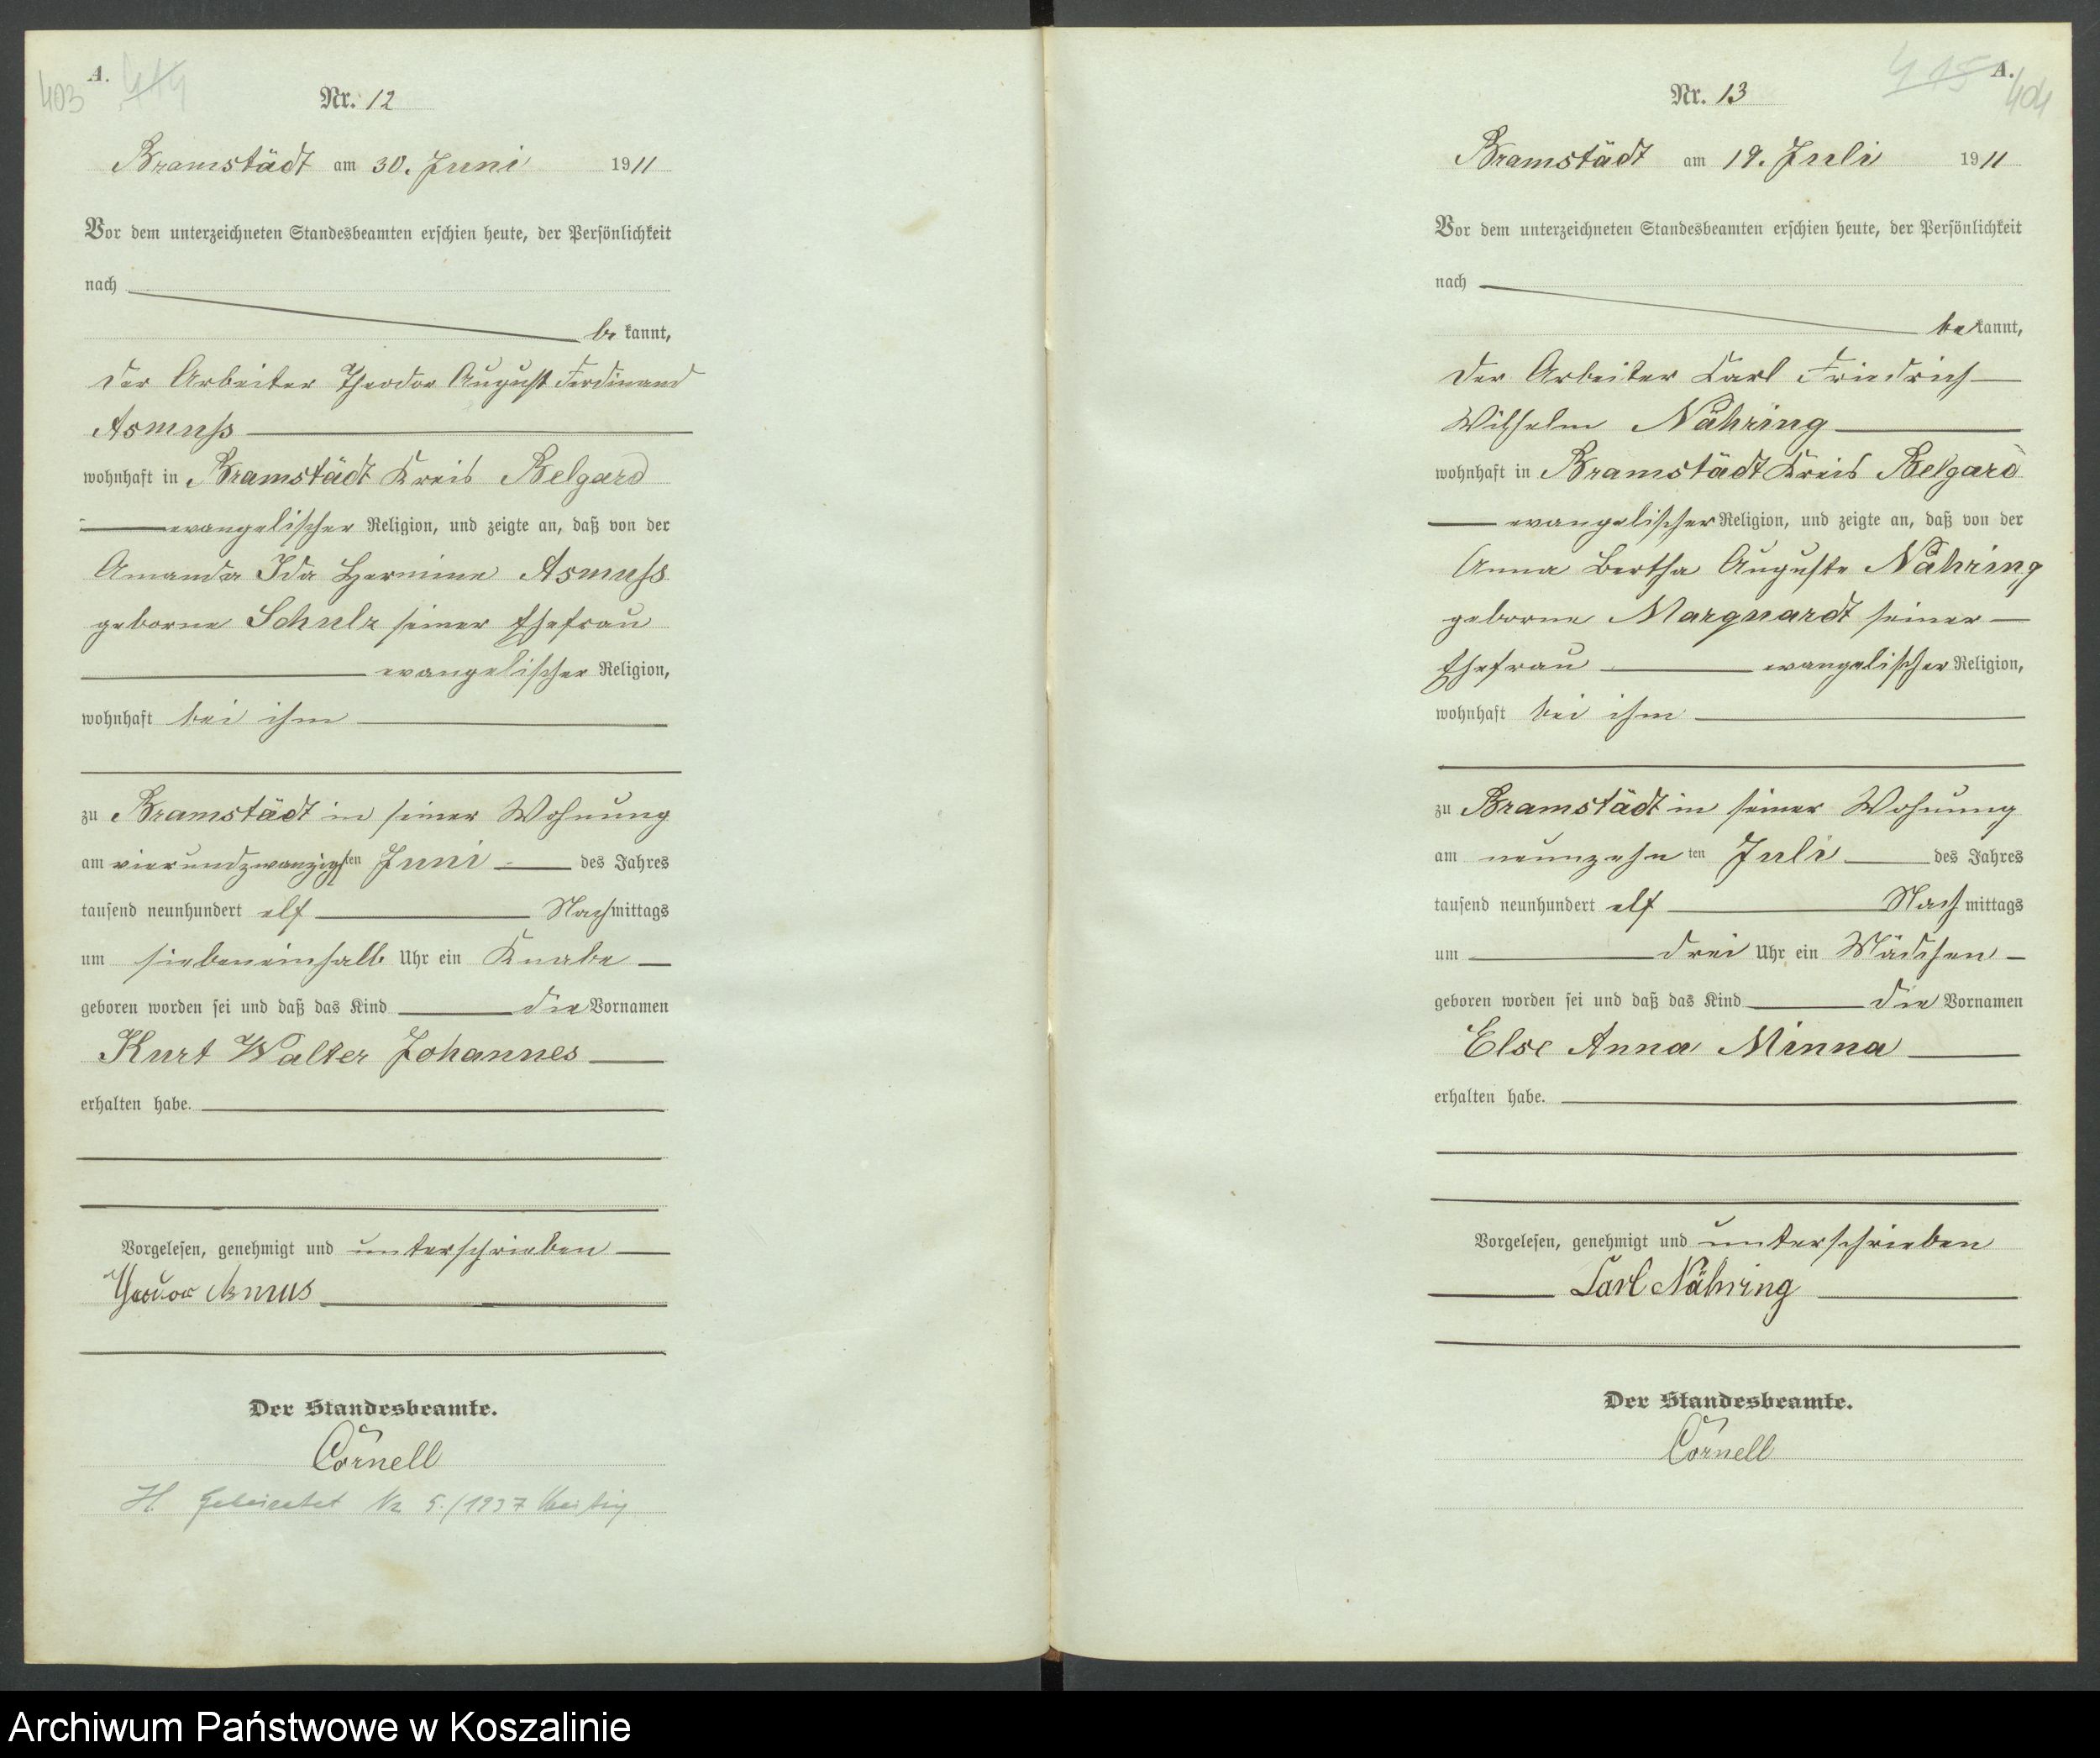 A.
403
414
Nr. 12
Bramstädt am 30. Juni 1911
Vor dem unterzeichneten Standesbeamten erschien heute, der Persönlichkeit
nach
be kannt,
der Arbeiter Theodor August Ferdinand
Asmuß
wohnhaft in Bramstädt Kreis Belgard
evangelischer Religion, und zeigte an, daß von der
Amanda Ida Hermine Asmuß
geborne Schulz seiner Ehefrau
evangelischer Religion,
wohnhaft bei ihm
zu Bramstädt in seiner Wohnung
am vierundzwanzigsten Juni des Jahres
tausend neunhundert elf Nachmittags
um siebeneinhalb Uhr ein Knabe
geboren worden sei und daß das Kind die Vornamen
Kurt Walter Johannes
erhalten habe.
Vorgelesen, genehmigt und unterschrieben
Theodor Asmus
Der Standesbeamte.
Cornell
H. Geheiratet Nr 5./1937
A.
415
404
Nr. 13
Bramstädt am 19. Juli 1911
Vor dem unterzeichneten Standesbeamten erschien heute, der Persönlichkeit
nach
bekannt,
der Arbeiter Carl Friedrich
Wilhelm Nähring
wohnhaft in Bramstädt Kreis Belgard
evangelischer Religion, und zeigte an, daß von der
Anna Bertha Auguste Nähring
geborne Marquardt seiner
Ehefrau evangelischer Religion,
wohnhaft bei ihm
zu Bramstädt in seiner Wohnung
am neunzehnten Juli des Jahres
tausend neunhundert elf Nachmittags
um drei Uhr ein Mädchen
geboren worden sei und daß das Kind die Vornamen
Else Anna Minna
erhalten habe.
Vorgelesen, genehmigt und unterschrieben
Carl Nähring
Der Standesbeamte.
Cornell
Archiwum Państwowe w Koszalinie